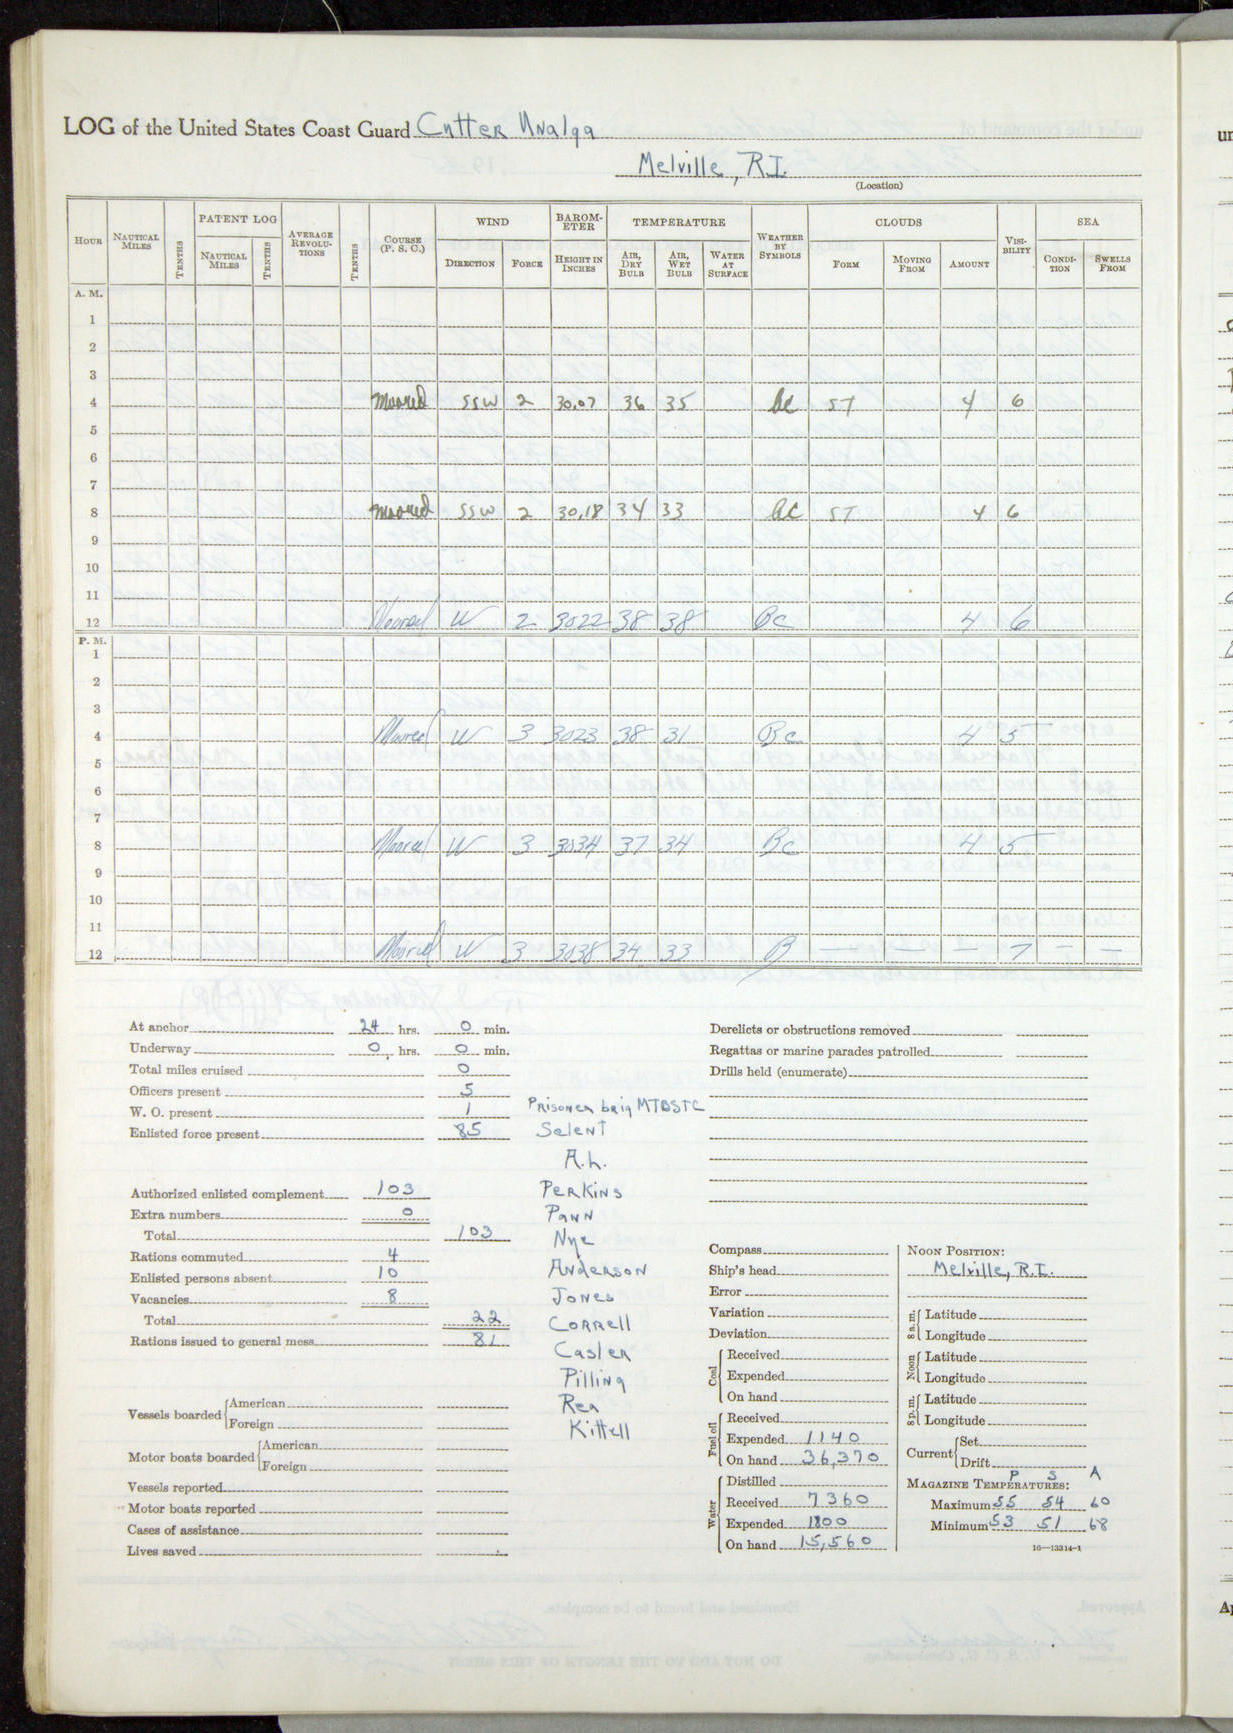 LOG of the United States Coast Guard Cutter Unalga
Melville, R.I.
(Location)
HOUR NAUTICAL MILES TENTHS PATENT LOG NAUTICAL MILES TENTHS AVERAGE REVOLU-TIONS TENTHS COURSE (P. S. C.) WIND DIRECTION FORCE BAROM-ETER HEIGHT IN INCHES TEMPERATURE AIR, DRY BULB AIR, WET BULB WATER AT SURFACE WEATHER BY SYMBOLS CLOUDS FORM MOVING FROM AMOUNT VISI-BILITY SEA CONDI-TION SWELLS FROM
A. M.
1
2
3
4 Moored SSW 2 30.07 36 35 bc ST 4 6
5
6
7
8 Moored SSW 2 30.18 34 33 bc ST 4 6
9
10
11
12 Moored W 2 3022 38 38 Bc 4 6
P. M.
1
2
3
4 Moored W 3 3023 38 31 Bc 4 5
5
6
7
8 Moored W 3 3034 37 34 Bc 4 5
9
10
11
12 Moored W 3 3038 34 33 B — — — 7 — —
At anchor 24 hrs. 0 min.
Underway 0 hrs. 0 min.
Total miles cruised 0
Officers present 5
W. O. present 1
Enlisted force present 85
Authorized enlisted complement 103
Extra numbers 0
Total 103
Rations commuted 4
Enlisted persons absent 10
Vacancies 8
Total 22
Rations issued to general mess 81
Vessels boarded American
Foreign
Motor boats boarded American
Foreign
Vessels reported
Motor boats reported
Cases of assistance
Lives saved
Prisoner brig MTBSTC
Selent
A.L.
Perkins
Pann
Nye
Anderson
Jones
Correll
Casler
Pilling
Rea
Kittell
Derelicts or obstructions removed
Regattas or marine parades patrolled
Drills held (enumerate)
Compass
Ship's head
Error
Variation
Deviation
Coal Received
Expended
On hand
Fuel oil Received
Expended 1140
On hand 36,370
Water Distilled
Received 7360
Expended 1800
On hand 15,560
NOON POSITION:
Melville, R.I.
8 a. m. Latitude
Longitude
Noon Latitude
Longitude
8 p. m. Latitude
Longitude
Current Set
Drift
P S A
MAGAZINE TEMPERATURES:
Maximum 55 54 60
Minimum 53 51 68
16—13314-1